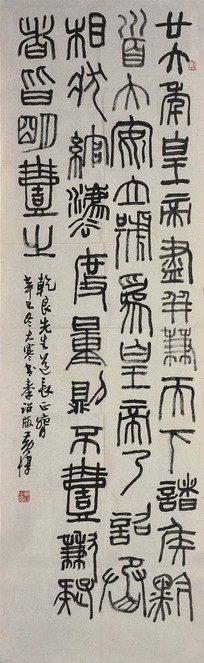 廿六年皇帝盡并兼天下諸侯黔
首大安立號為皇帝乃詔丞
相狀綰灋度量則不壹歉疑
者皆明壹之
乾良先生道長正
辛巳冬大寒書秦詔版